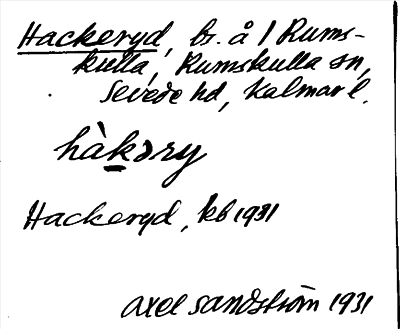 Hackeryd, bs. å 1 Rums-
kulla, Rumskulla sn,
Sevede hd, Kalmar l.
hàkəry
Hackeryd, kb 1931
Axel Sandström 1931